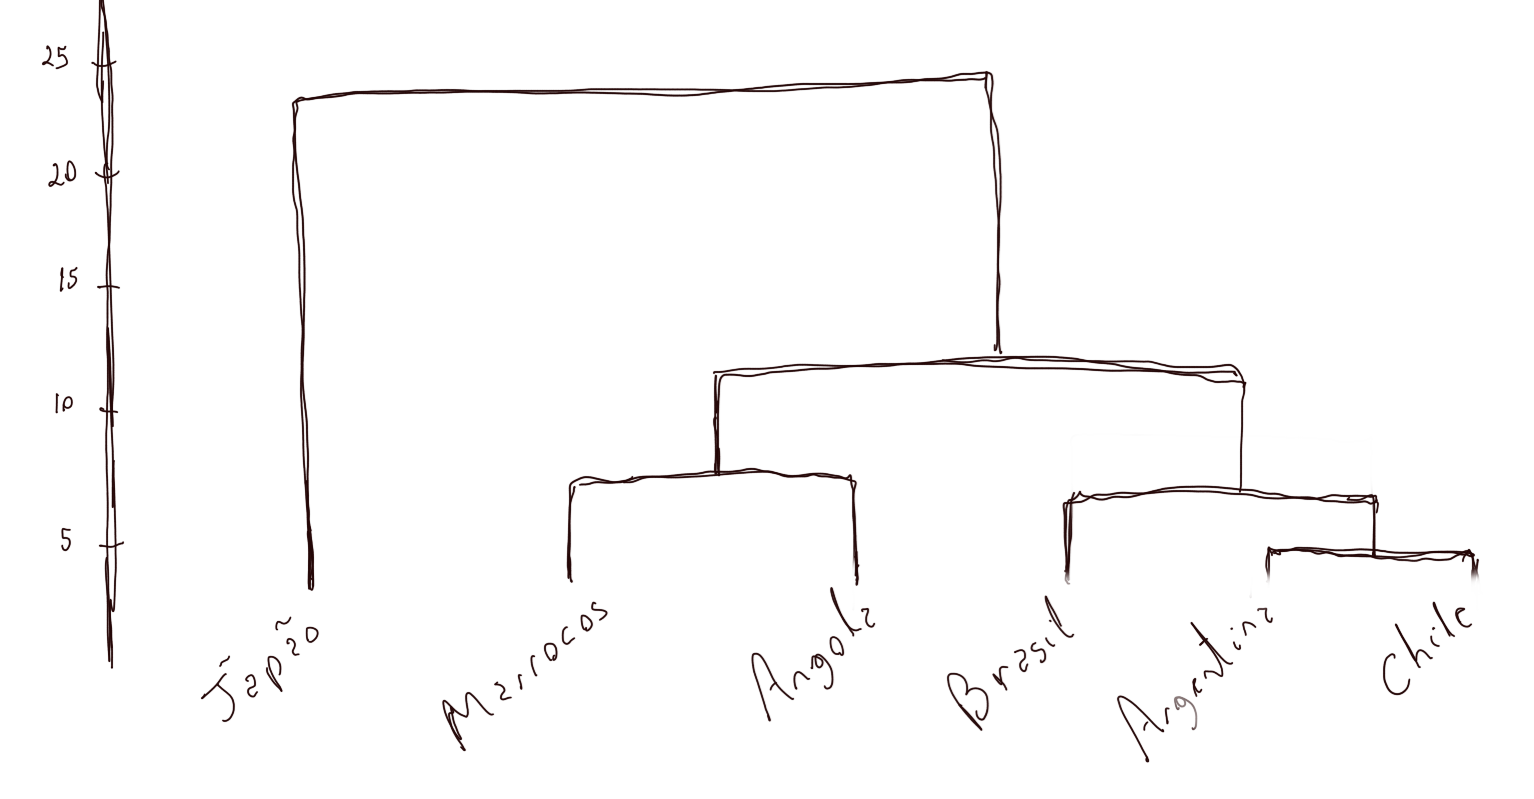 25
20
15
10
5
Japão
Marrocos
Angola
Brasil
Argentina
Chile